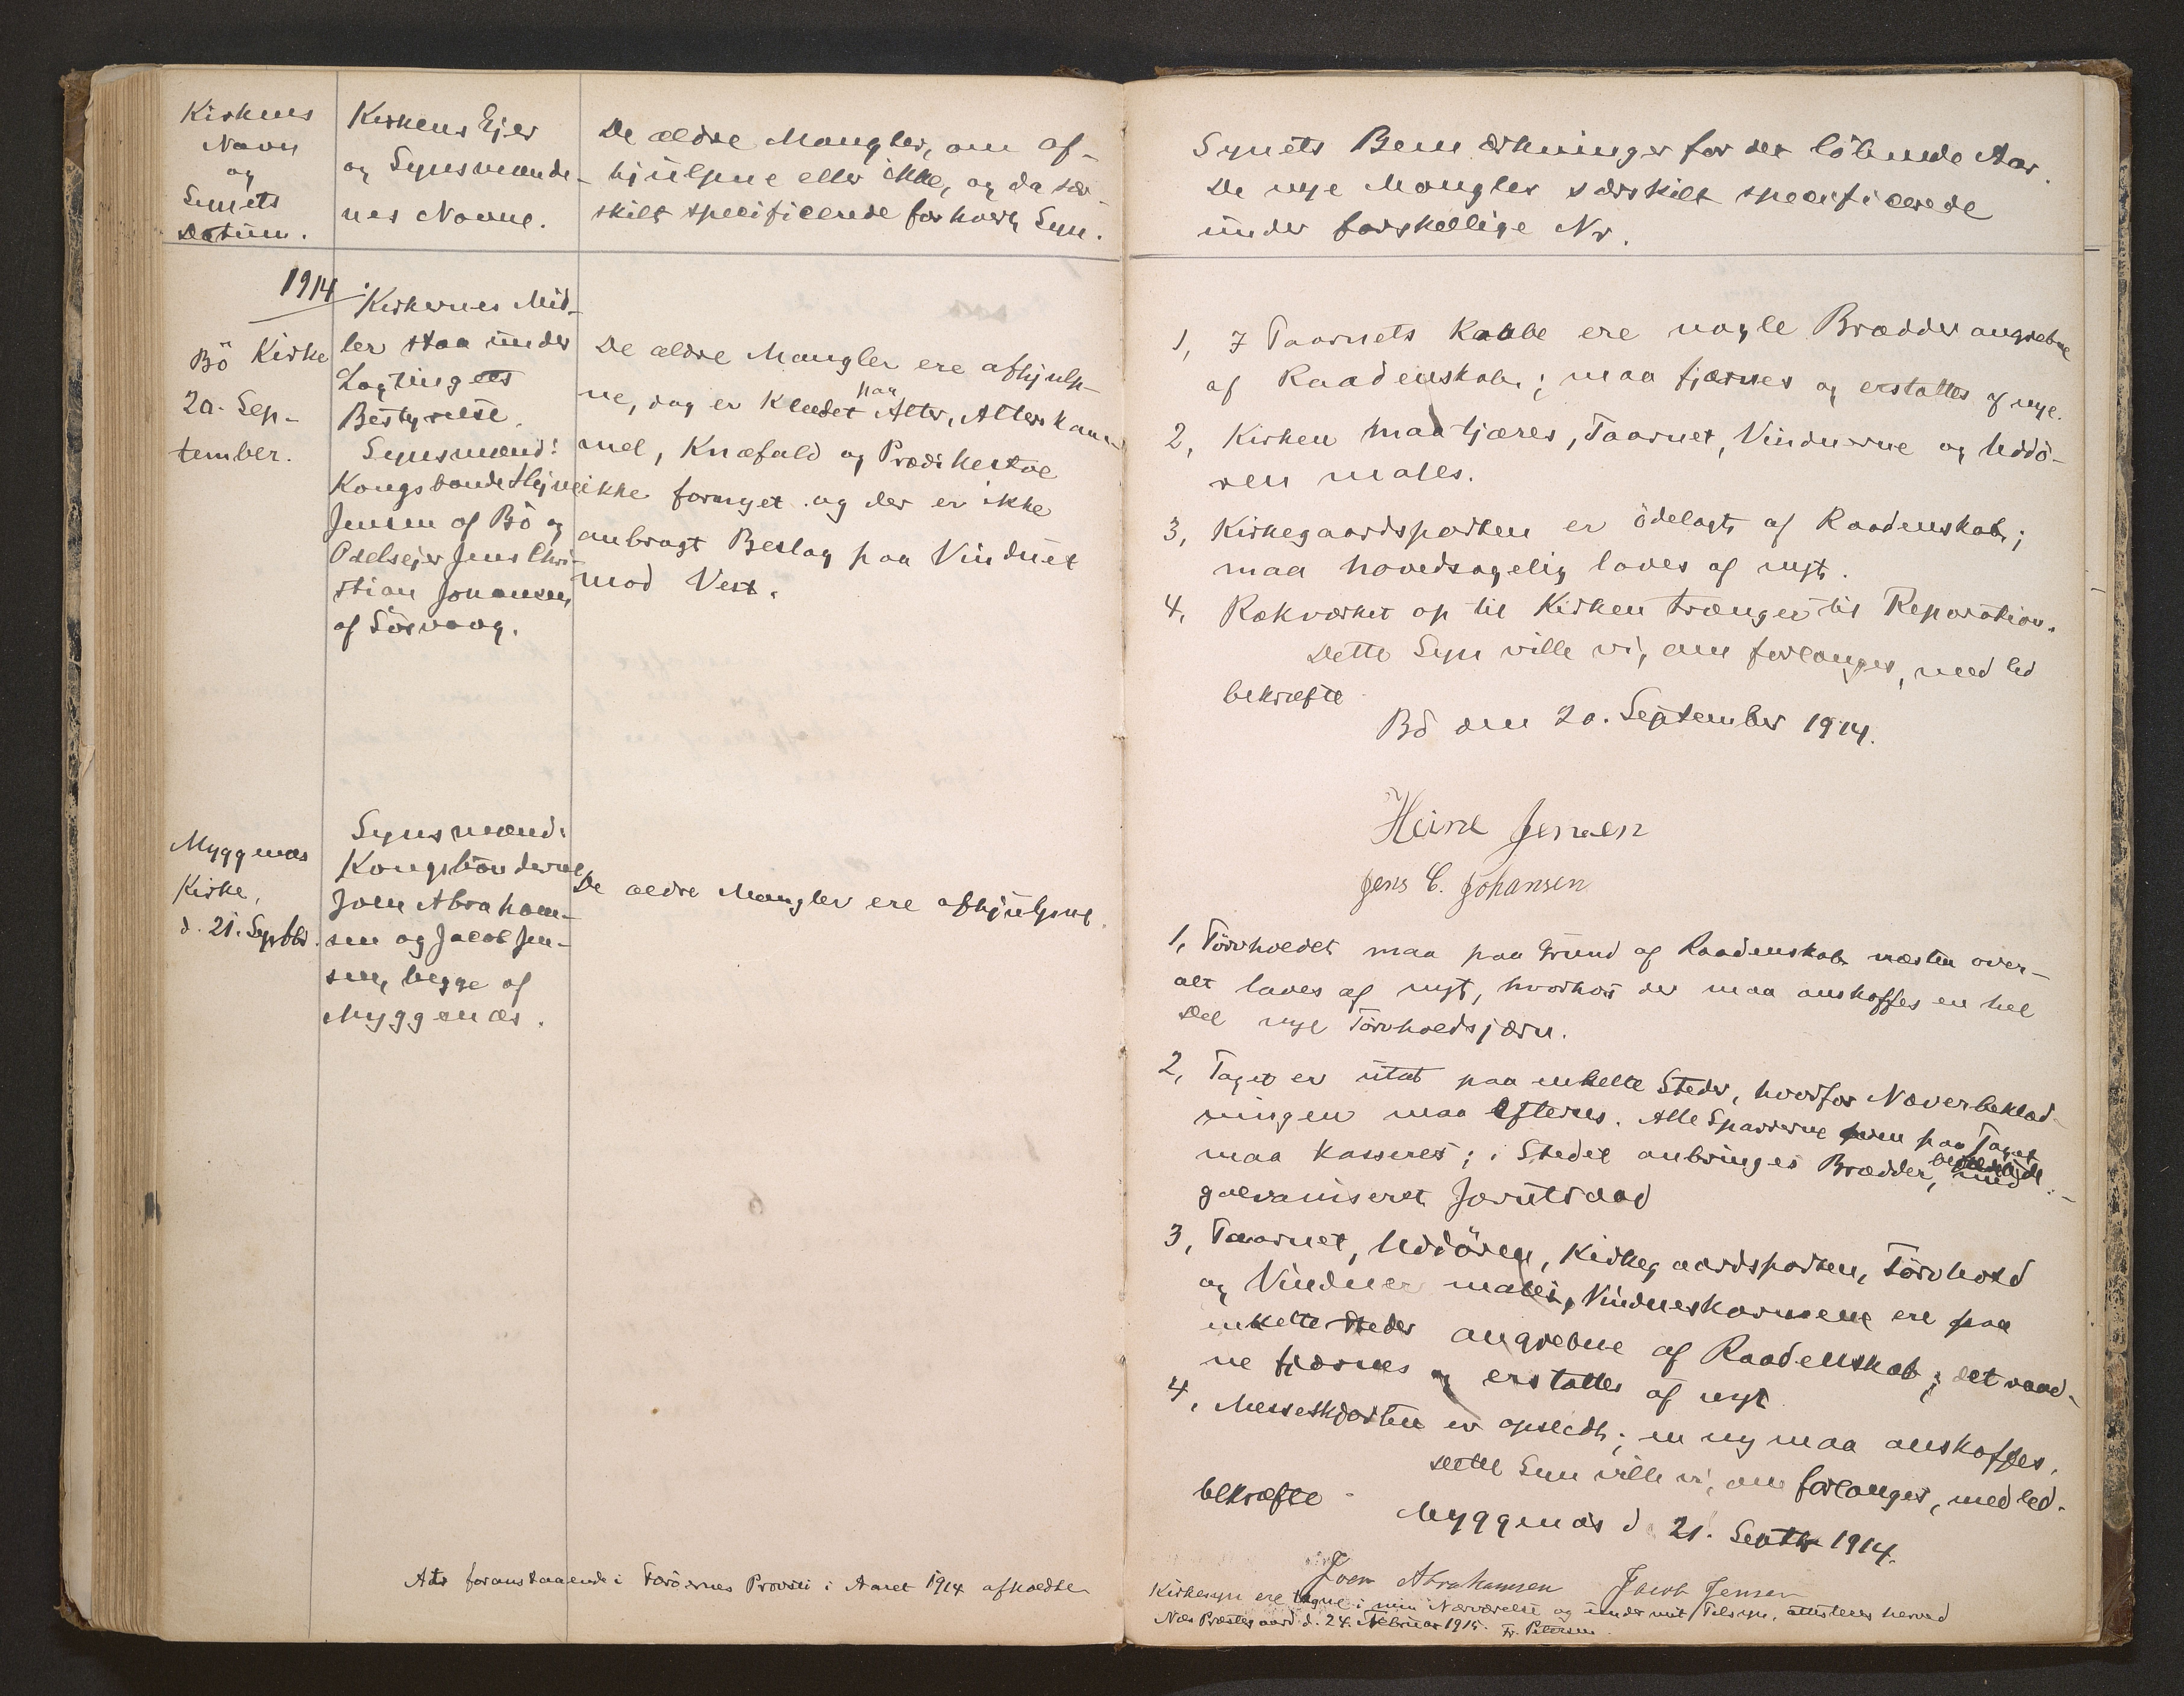 Kirkens
Navn
og
Synets
Datum.
Kirkens Ejer
og Synsmænde-
nes Navne.
De ældre Mangler, om af-
hjulpne eller ikke, og da sær-
skilt specificerede for hvert Syn.
1914
Bö Kirke
20. Sep-
tember.
Kirkernes Mid-
ler staa under
Lagtingets
Bestyrelse.
Synsmænd:
Kongsbonde Hejne
Jensen af Bö og
Odelsejer Jens Chri-
stian Johansen
af Sörvaag.
De ældre Mangler ere afhjulp-
ne, dog er Klædet paa Alter, Alterskam-
mel, Knæfald og Prædikestol
ikke fornyet og der er ikke
anbragt Beslag paa Vinduet
mod Vest.
Myggenæs
Kirke,
d. 21. Septbr.
Synsmænd:
Kongsbönderne
Joen Abraham-
sen og Jacob Jen-
sen, begge af
Myggenæs.
De ældre Mangler ere afhjulpne.
Att foranstaaende i Færöernes Provsti i Aaret 1914 afholdte
Synets Bemærkninger for det löbende Aar.
De nye Mangler særskilt specificerede
under forskellige Nr.
1, I Taarnets Kobbe ere nogle Brædder angrebne
af Raadenskab; maa fjærnes og erstattes af nye.
2, Kirken maa tjæres, Taarnet, Vinduerne og Uddö-
ren males.
3, Kirkegaardsporten er ödelagt af Raadenskab;
maa hovedsagelig laves af nyt.
4, Rækværket op til Kirken trænger til Reparation.
Dette Syn ville vi, om forlanges, med Ed
bekræfte
Bö den 20. September 1914.
Heine Jensen
Jens C. Johansen
1, Törvholdet maa paa Grund af Raadenskab næsten over-
alt laves af nyt, hvorhos der maa anskaffes en hel
Del nye Törvholdsjærn.
2, Taget er utæt paa enkelte Steder, hvorfor Næverbeklæd-
ningen maa efterses. Alle Sparrerne paa Taget
maa kasseres; i Stedet anbringes Brædder, med
galvaniseret Jærntraad
3, Taarnet, Uddören, Kirkegaardsporten, Törvhold
og Vinduer males, Vindueskarmene ere paa
enkelte Steder angrebne af Raadenskab; det raad-
ne fjærnes og erstattes af nyt
4, Messeskjorten er opslidt; en ny maa anskaffes.
Dette Syn ville vi, om forlanges, med Ed
bekræfte
Myggenæs d. 21. Septbr 1914.
Joen Abrahamsen Jacob Jensen
Kirkesyn ere tagne i min Nærværelse og under mit Tilsyn, attesteres herved
Næs Præstegaard d. 24. Februar 1915. Fr. Petersen.